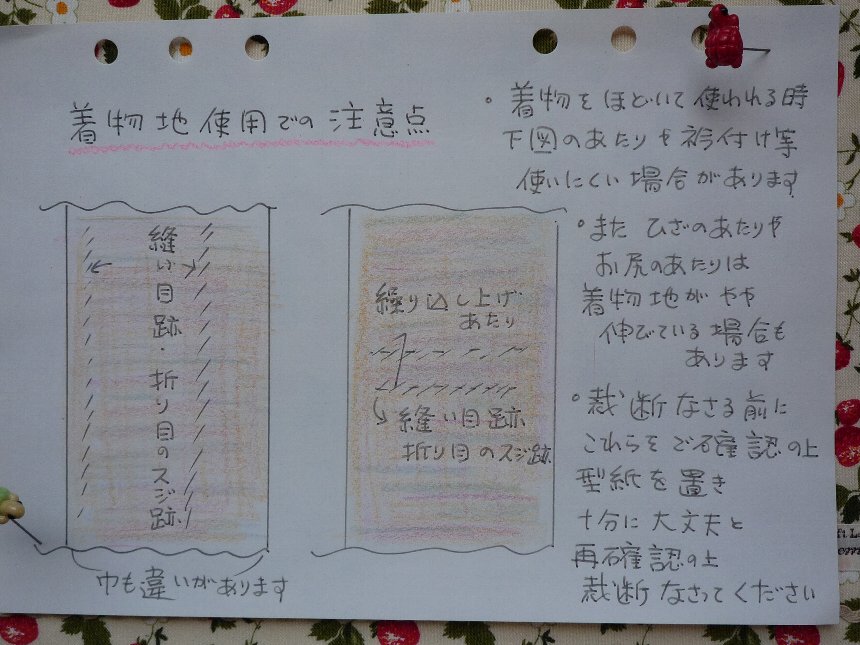 着物地使用での注意点
縫い目跡・折り目のスジ跡
巾も違いがあります
繰り込し上げ
あたり
縫い目跡
折り目のスジ跡
・着物をほどいて使われる時
下図のあたりや衿付け等
使いにくい場合があります
・また ひざのあたりや
お尻のあたりは
着物地がやや
伸びている場合も
あります
・裁断なさる前に
これらをご確認の上
型紙を置き
十分に大丈夫と
再確認の上
裁断なさってください